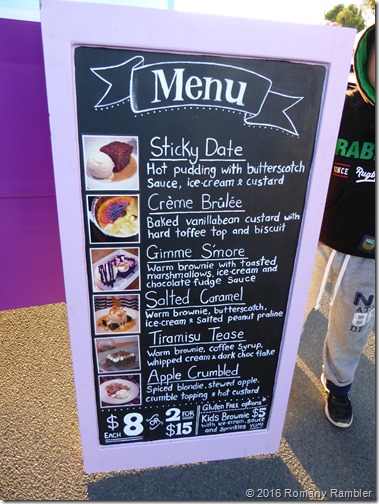 Menu
Sticky Date
Hot pudding with butterscotch
Sauce, ice-cream & custard
Crème Brûlée
Baked vanillabean custard with
hard toffee top and biscuit
Gimme S'more
Warm brownie with toasted
marshmallows, ice-cream and
chocolate fudge Sauce
Salted Caramel
Warm brownie, butterscotch,
ice-cream & Salted peanut praline
Tiramisu Tease
Warm brownie, coffee syrup,
whipped cream & dark choc flake
Apple Crumbled
Spiced blondie, stewed apple,
crumble topping & hot custard
$8 EACH OR 2 FOR $15
Gluten Free options
Kids Brownie $5
with ice cream, sauce
and sprinkles YUM!
RAB
SINCE
Rugb
© 2016 Romany Rambler